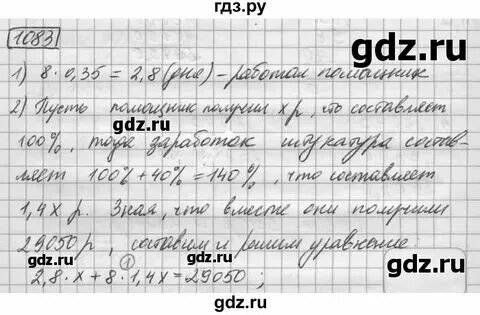 гдз.ру
1083
gdz.ru
gdz.ru
1) 8 · 0,35 = 2,8 (дне) - работал помощник
2) Пусть помощник получил x р, что составляет
100%, тогда заработок штукатура состав-
ляет 100% + 40% = 140%, что составляет
1,4x р. Зная, что вместе они получили
29050 р, составим и решим уравнение:
①
2,8 · x + 8 · 1,4x = 29050 ;
gdz.ru
gdz.ru
gdz.ru